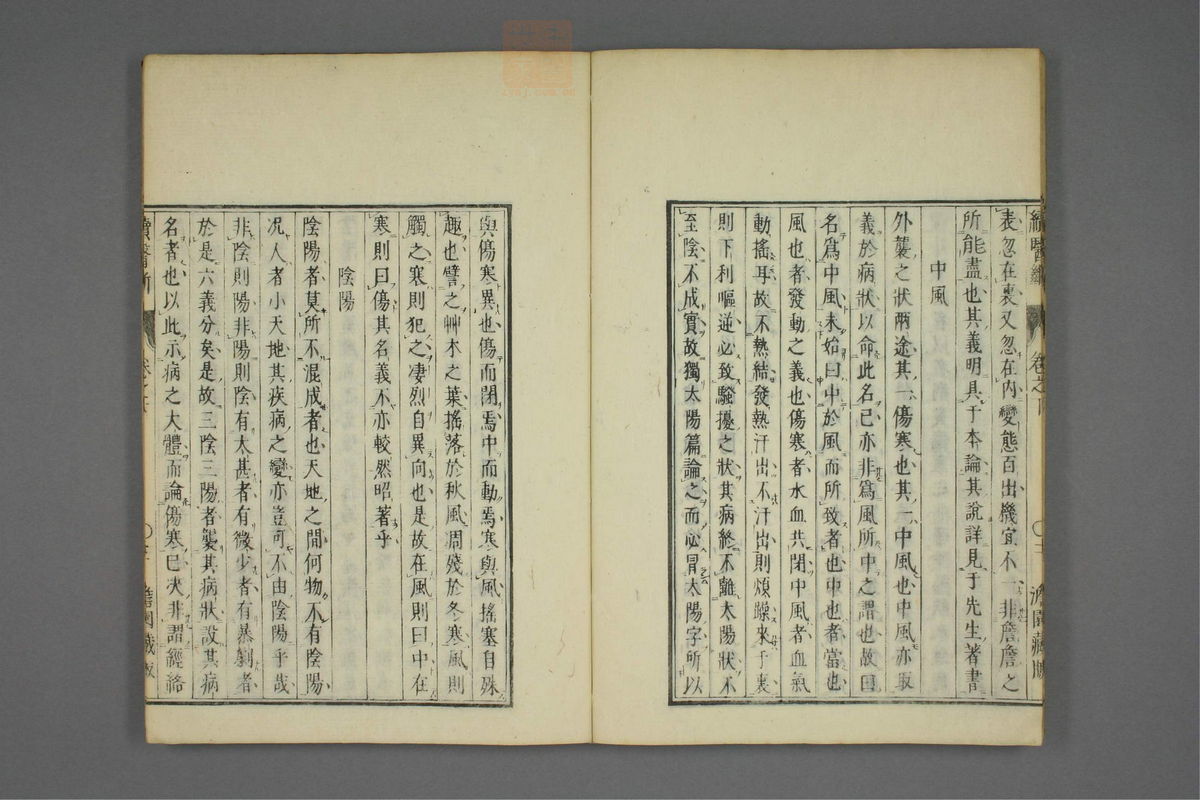 表忽在裏又忽在内變態百出機宜不一非詹詹之
所能盡也其義明具于本論其說詳見于先生著書
中風
外襲之狀兩途其一傷寒也其一中風也中風亦取
義於病狀以命此名已亦非爲風所中之謂也故曰
名爲中風未始曰中於風而所致者也中也者當也
風也者發動之義也傷寒者水血共閉中風者血氣
動搖耳故不熱結發熱汗出不汗出則煩躁來于裏
則下利嘔逆必致騷擾之狀其病終不離太陽狀不
至陰不成實故獨太陽篇論之而必冒太陽字所以
與傷寒異也傷而閉焉中而動焉寒與風搖塞自殊
趣也譬之艸木之葉搖落於秋風凋殘於冬寒風則
觸之寒則犯之凄烈自異向也是故在風則曰中在
寒則曰傷其名義不亦較然昭著乎
陰陽
陰陽者莫所不混成者也天地之間何物不有陰陽
况人者小天地其疾病之變亦豈可不由陰陽乎哉
非陰則陽非陽則陰有太甚者有微少者有暴劇者
於是六義分矣是故三陰三陽者襲其病狀設其病
名者也以此示病之大體而論傷寒已決非謂經絡